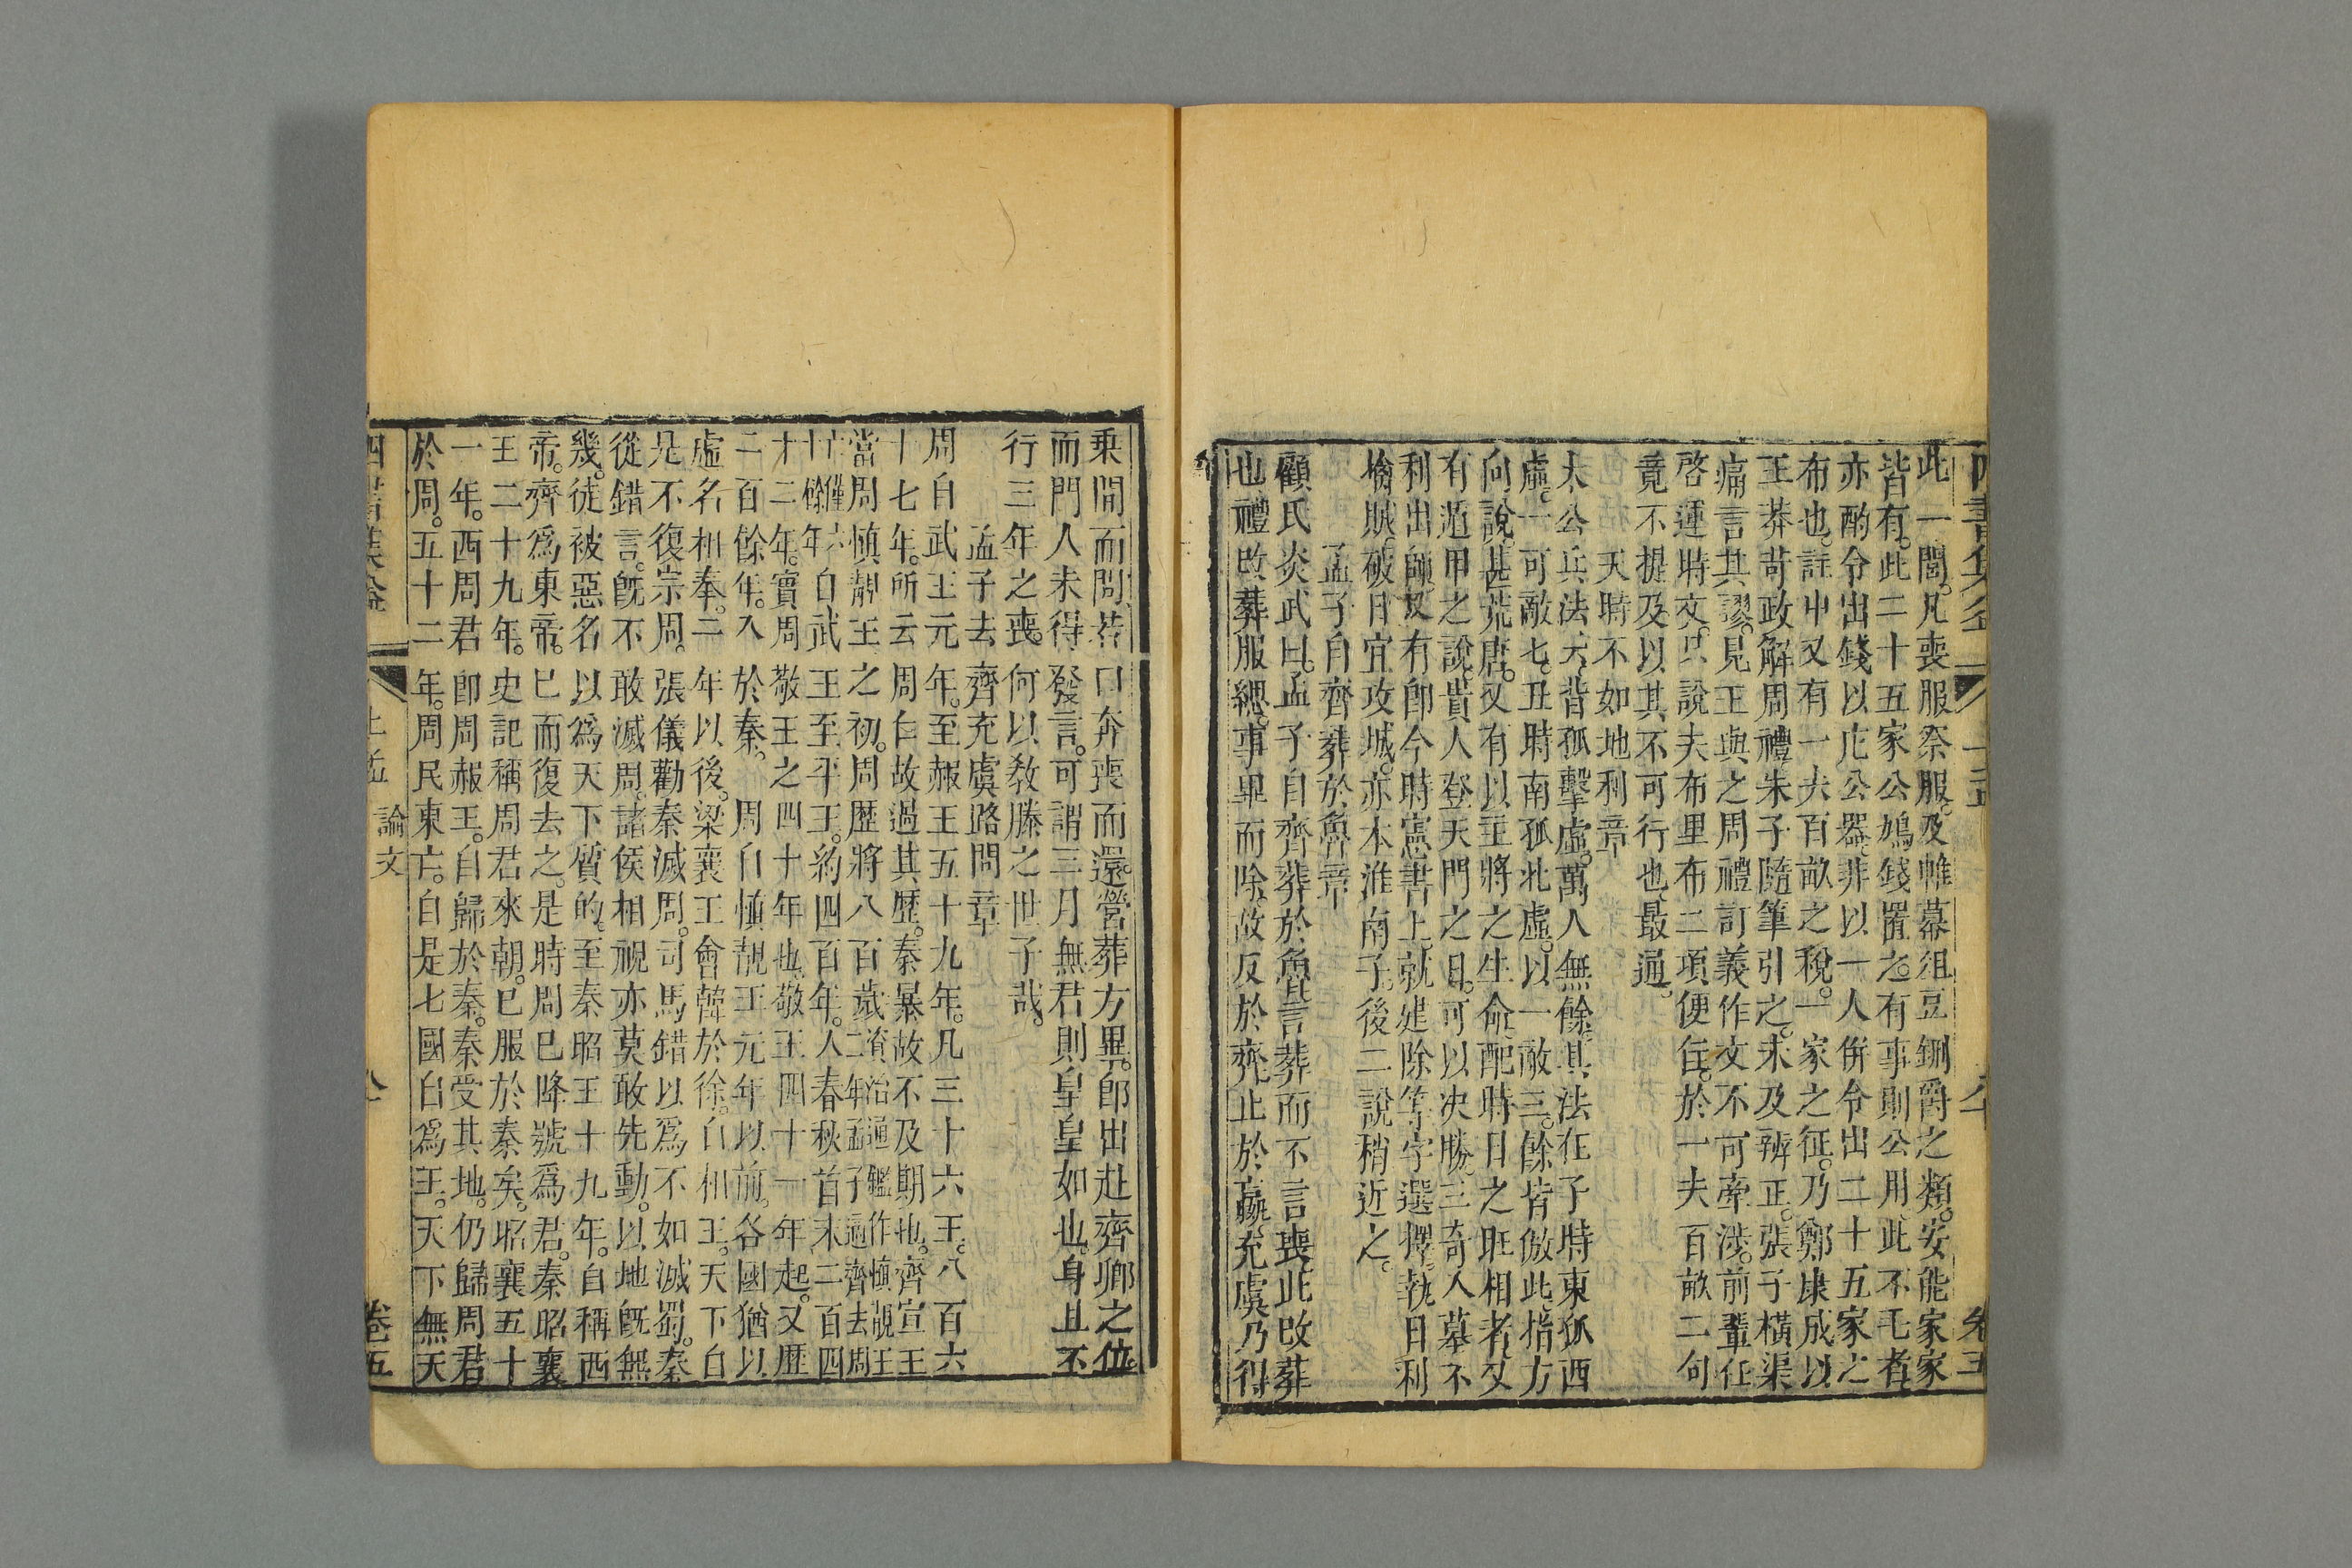 此一閭。凡喪服祭服。及帷幕俎豆鉶爵之類。安能家家
皆有。此二十五家公鳩錢置之。有事則公用。此不毛者
亦酌令出錢以庀公器。非以一人併令出二十五家之
布也。註中又有一夫百畝之稅。一家之征。乃鄭康成以
王莽苛政解周禮。朱子隨筆引之。未及辨正。張子橫渠
痛言其謬。見王與之周禮訂義。作文不可牽涉。前輩任
啓運時文。只說夫布里布二項便住。於一夫百畝二句
竟不提及。以其不可行也。最通。
天時不如地利章
太公兵法。大背孤擊虛。萬人無餘。其法在子時東孤西
虛。一可敵七。丑時南孤北虛。以一敵三。餘皆倣此。指方
向說。甚荒唐。又有以主將之生命。配時日之旺相者。又
有遁甲之說。貴人登天門之日。可以決勝。三奇入墓不
利出師。又有卽今時憲書上。就建除等字選擇。執日利
擒賊。破日宜攻城。亦本淮南子。後二說稍近之。
孟子自齊葬於魯章
顧氏炎武曰。孟子自齊葬於魯。言葬而不言喪。此改葬
也。禮改葬服緦。事畢而除。故反於齊。止於嬴。充虞乃得
乗間而問。若曰奔喪而還。營葬方畢。卽出赴齊卿之位。
而門人未得發言。可謂三月無君則皇皇如也。身且不
行三年之喪。何以敎滕之世子哉。
孟子去齊充虞路問章
周自武王元年。至赧王五十九年。凡三十六王。八百六
十七年。所云周仁故過其歷。秦暴故不及期也。齊宣王
當周愼靚王之初。周歷將八百歲二年孟子適齊去周
年。自武王至平王。約四百年。入春秋首末二百四
十二年。實周敬王之四十年也。敬王四十一年起。又歷
二百餘年。入於秦。周自愼靚王元年以前。各國猶以
虛名相奉。二年以後。梁襄王會韓於徐。自相王。天下自
是不復宗周。張儀勸秦滅周。司馬錯以爲不如滅蜀。秦
從錯言。旣不敢滅周。諸侯相視亦莫敢先動。以地旣無
幾。徒被惡名以爲天下質的。至秦昭王十九年。自稱西
帝。齊爲東帝。已而復去之。是時周已降號爲君。秦昭襄
王二十九年。史記稱周君來朝。已服於秦矣。昭襄五十
一年。西周君卽周赧王。自歸於秦。秦受其地。仍歸周君
於周。五十二年。周民東亡。自是七國自爲王。天下無天
論文
卷五